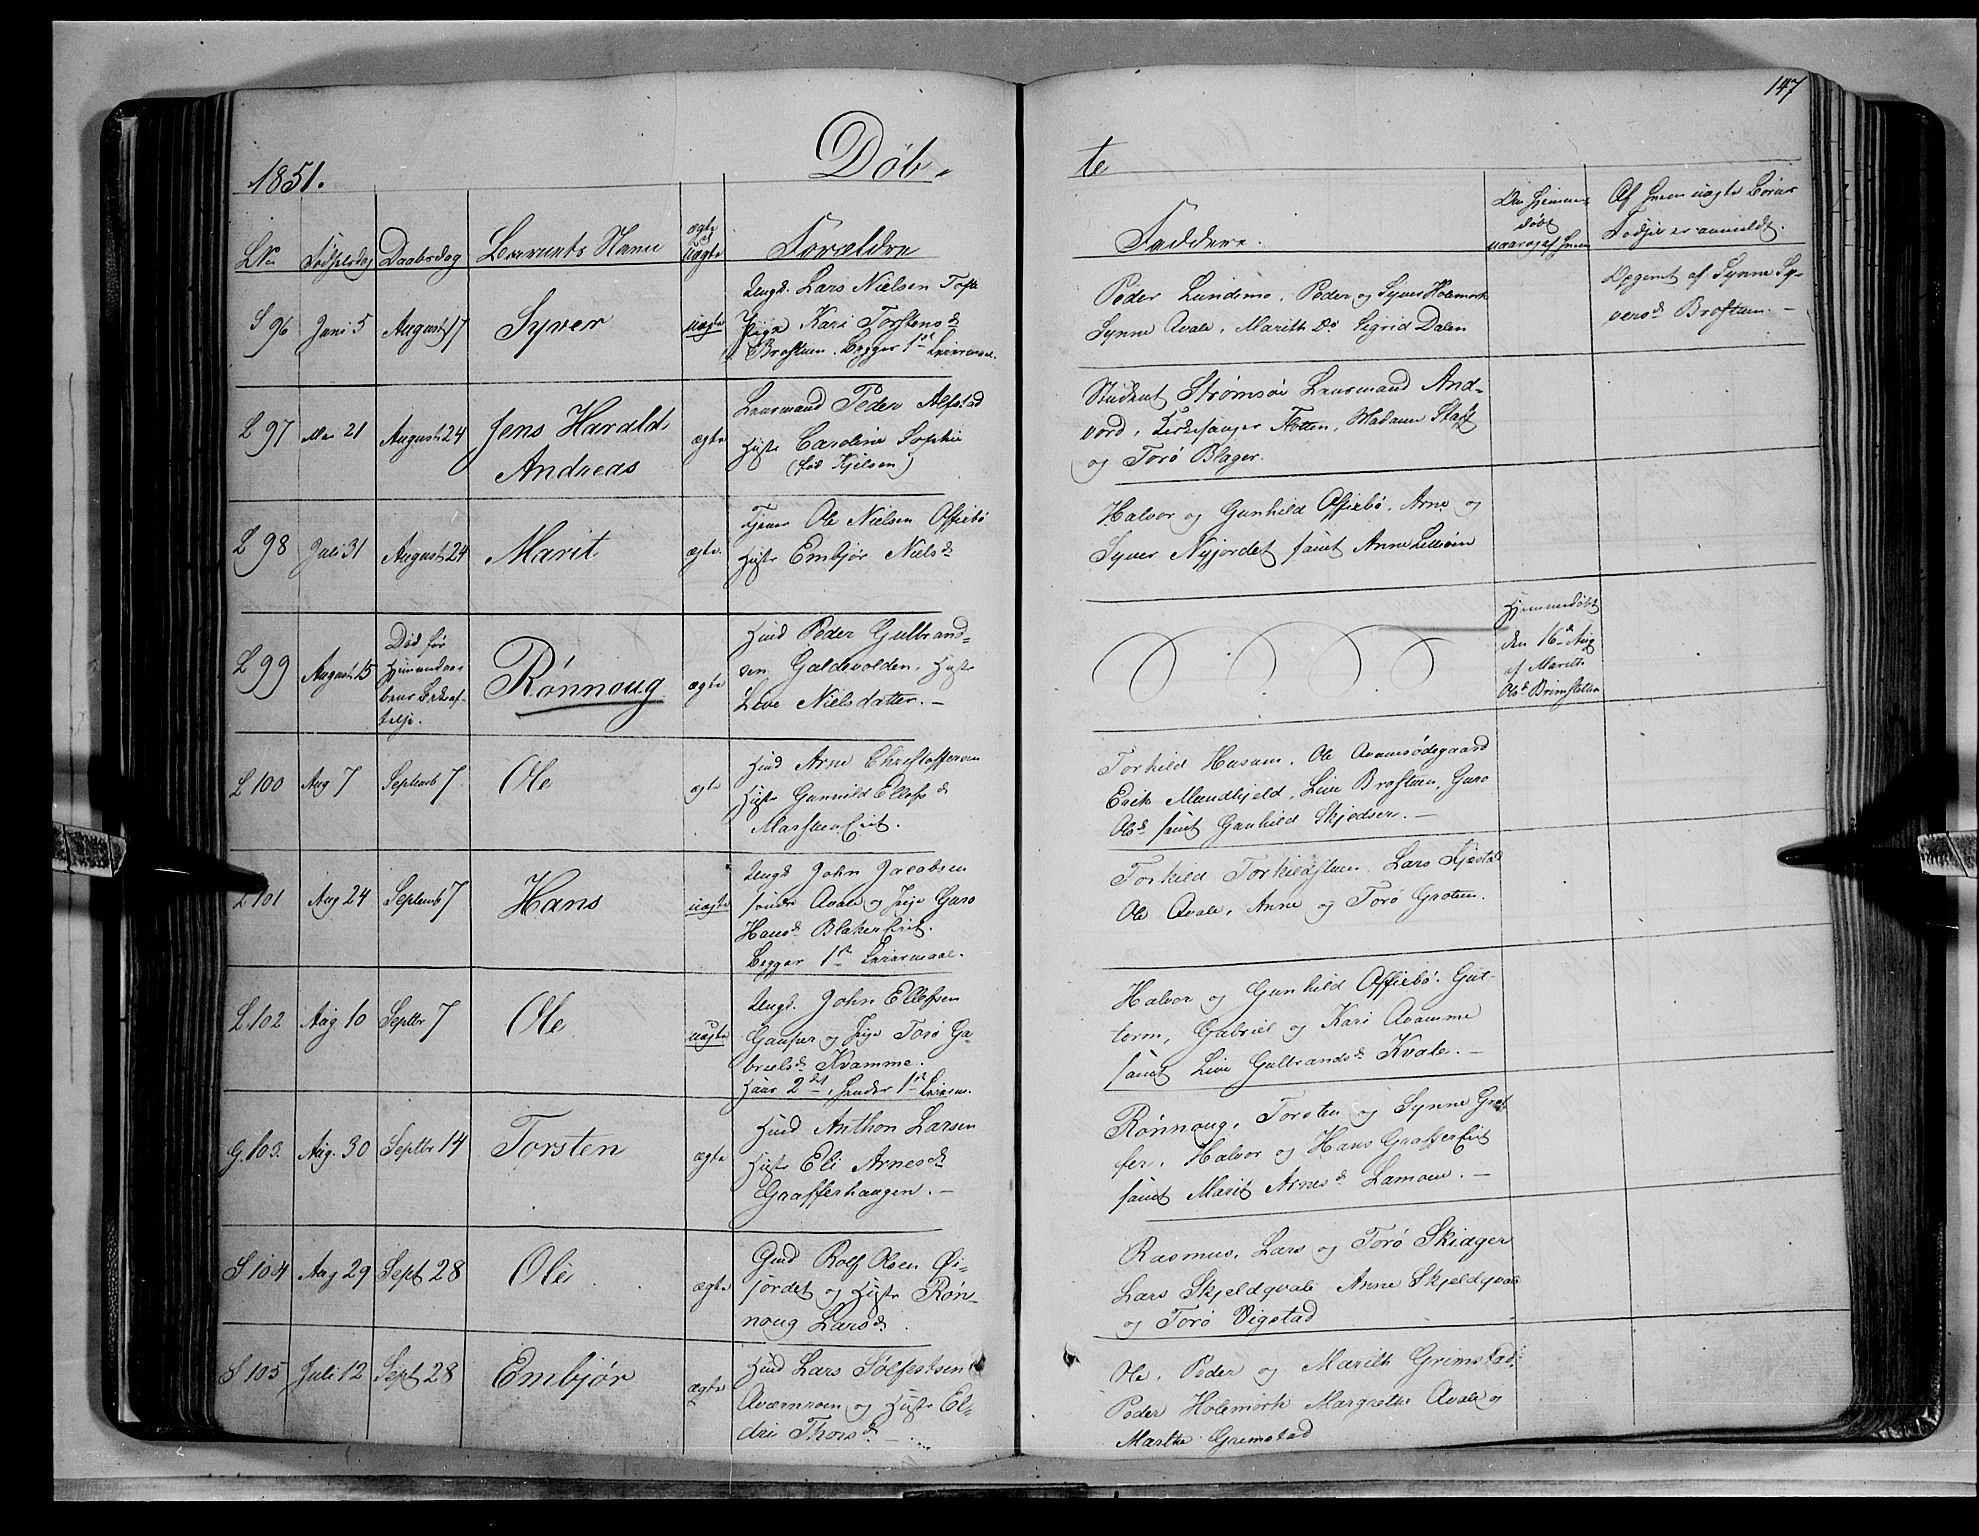 147
Døb-
te
1851.
LNo Fødselsdag Daabsdag Barnets Navn ægte el uægte Forældre
Faddere. Om hjemmedøbt naar og af hvem Af hvem uægte Børns Fødsel er anmeldt.
S 96 Juni 5 August 17 Syver uægte
Ungk. Lars Nielsen Tofte
Pige Kari Torstensd
Broftuen. Begges 1ste Leiermaal.
Peder Lundemo, Peder og Syver Holemork
Synne Qvale, Marith Do Sigrid Dalen
Opgivet af Synne Sy-
versd Broftuen. —
L 97 Mai 21 August 24 Jens Harald
Andreas
ægte
Lensmand Peder Alfstad
Hustr Caroline Sophie
(fød Kjelsen)
Student Strømsøe Lensmand And-
vord, Kirkesanger Flotten, Madame Staff
og Torø Blager.
L 98 Juli 31 August 24 Marit ægte
Tjener Ole Nielsen Offirbø
Hustr Embjør Nielsd
Halvor og Gunhild Offirbø, Arne og
Syver Nyjordet samt Anne Lilleøien
L 99 August 15 Død før
Hjemmedaa-
bens Bekræf-
telse.
Rønnoug ægte
Huusmd Peder Gulbrand-
sen Galdevolden, Hustr
Live Nielsdatter. —
Hjemmedøbt
den 16d Aug
af Marith
Olsd Brimsletten
L 100 Aug 7 Septemb 7 Ole ægte
Huusmd Arne Christoffersen
Hustr Gunhild Ellefsd
Marstuen Eiet.
Torkild Husum, Ole Qvamsødegaard
Erik Mundhjeld, Live Broftuen, Guro
Olsd samt Gunhild Skjedsen. —
L 101 Aug 24 Septemb 7 Hans uægte
Ungk. John Jacobsen
søndre Qvale og Pige Guro
Hansd Blaker Eiet.
Begges 1ste Leiermaal.
Torkild Torkildstuen, Lars Sjøstad
Ole Qvale, Anne og Torø Groten.
L 102 Aug 10 Septbr 7 Ole uægte
Ungk. John Ellefsen
Gauper og Pige Torø Ga-
brielsd Kvamme.
Hans 2det, hendes 1ste Leierm.
Halvor og Gunhild Offirbø. Gut-
torm, Gabriel og Kari Qvamme
samt Live Gulbrandsd Kvale. —
G. 103. Aug. 30 Septbr 14 Torsten ægte
Huusmd Anthon Larsen
Hustr Eli Arnesd
Grafferhaugen. —
Rønnoug, Torsten og Synne Graf-
fer, Halvor og Hans Graffer Eiet
samt Marit Arnesd Lamoen. —
S 104 Aug 29 Sept 28 Ole ægte
Gmd Rolf Olsen Øi-
jordet og Hustr Røn-
noug Larsd.
Rasmus, Lars og Torø Skiager
Lars Skjeldqvale Anne Skjeldqvale
og Torø Vigstad
S 105 Juli 12 Sept 28 Embjør ægte
Huusmd Lars Sølfestsen
Qværnroen og Hustr El-
dri Thorsd —
Ole, Peder og Marith Grimstad,
Peder Holemork Margrethe Qvale og
Marthe Grimstad